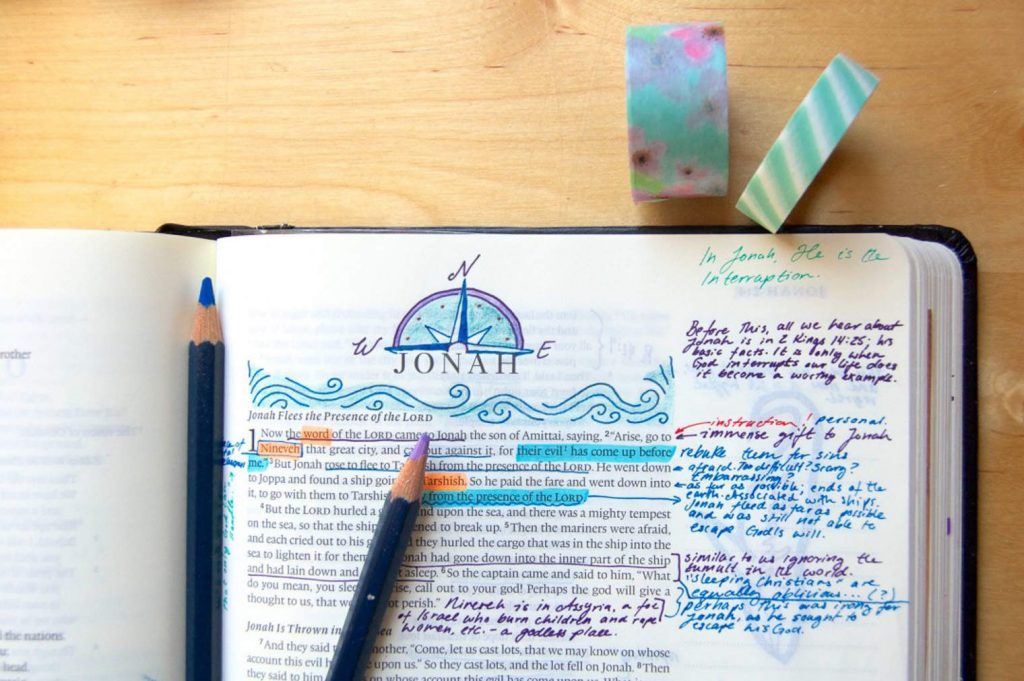 In Jonah, He is the
Interruption.
N
W
E
JONAH
Before This, all we hear about
Jonah is in 2 Kings 14:25; his
basic facts. It is only when
God interrupts our life does
it become a worthy example.
Jonah Flees the Presence of the LORD
1 Now the word of the LORD came to Jonah the son of Amittai, saying, 2 "Arise, go to
Nineveh that great city, and call out against it, for their evil has come up before
me." 3 But Jonah rose to flee to Tarshish from the presence of the LORD. He went down
to Joppa and found a ship going Tarshish. So he paid the fare and went down into
it, to go with them to Tarshish from the presence of the LORD.
4 But the LORD hurled a upon the sea, and there was a mighty tempest
on the sea, so that the ship to break up. 5 Then the mariners were afraid,
and each cried out to his they hurled the cargo that was in the ship into the
sea to lighten it for them Jonah had gone down into the inner part of the ship
and had lain down and asleep. 6 So the captain came and said to him, "What
do you mean, you call out to your god! Perhaps the god will give a
thought to us, that we not perish."
instruction! personal.
immense gift to Jonah
rebuke them for sins
afraid. Too difficult? Scary?
Embarrassing?
as far as possible; ends of the
earth. Associated with ships.
Jonah fled as far as possible
and was still not able to
escape God's will.
similar to us ignoring the
tumult in the world.
"Sleeping Christians" are
equally oblivious... (?)
perhaps this was irony for
Jonah, as he sought to
escape his God.
Nineveh is in Assyria, a foe
of Israel who burn children and rape
women, etc. - a godless place.
Jonah Is Thrown in Sea
7 And they said another, "Come, let us cast lots, that we may know on whose
account this evil upon us." So they cast lots, and the lot fell on Jonah. 8 Then
they said to him on whose account this evil has come upon us. What is
the nations.
head.